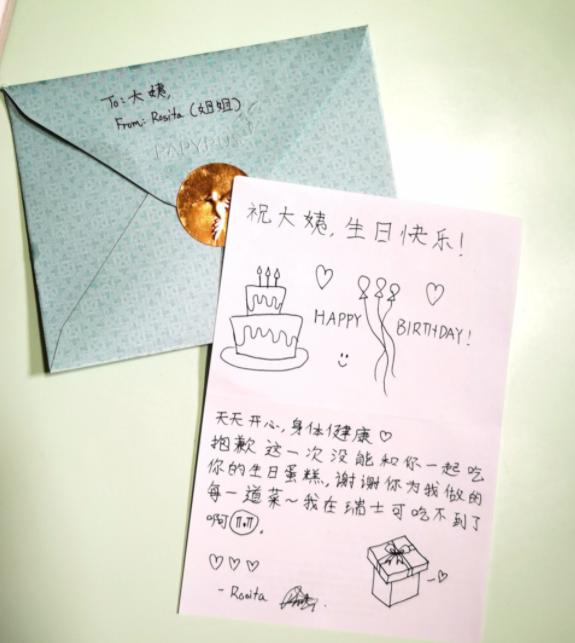 To: 大姨,
From: Rosita (姐姐)
PAPYRUS
祝大姨, 生日快乐!
HAPPY BIRTHDAY!
天天开心, 身体健康 ♡
抱歉这一次没能和你一起吃
你的生日蛋糕, 谢谢你为我做的
每一道菜~我在瑞士可吃不到了
啊
- Rosita